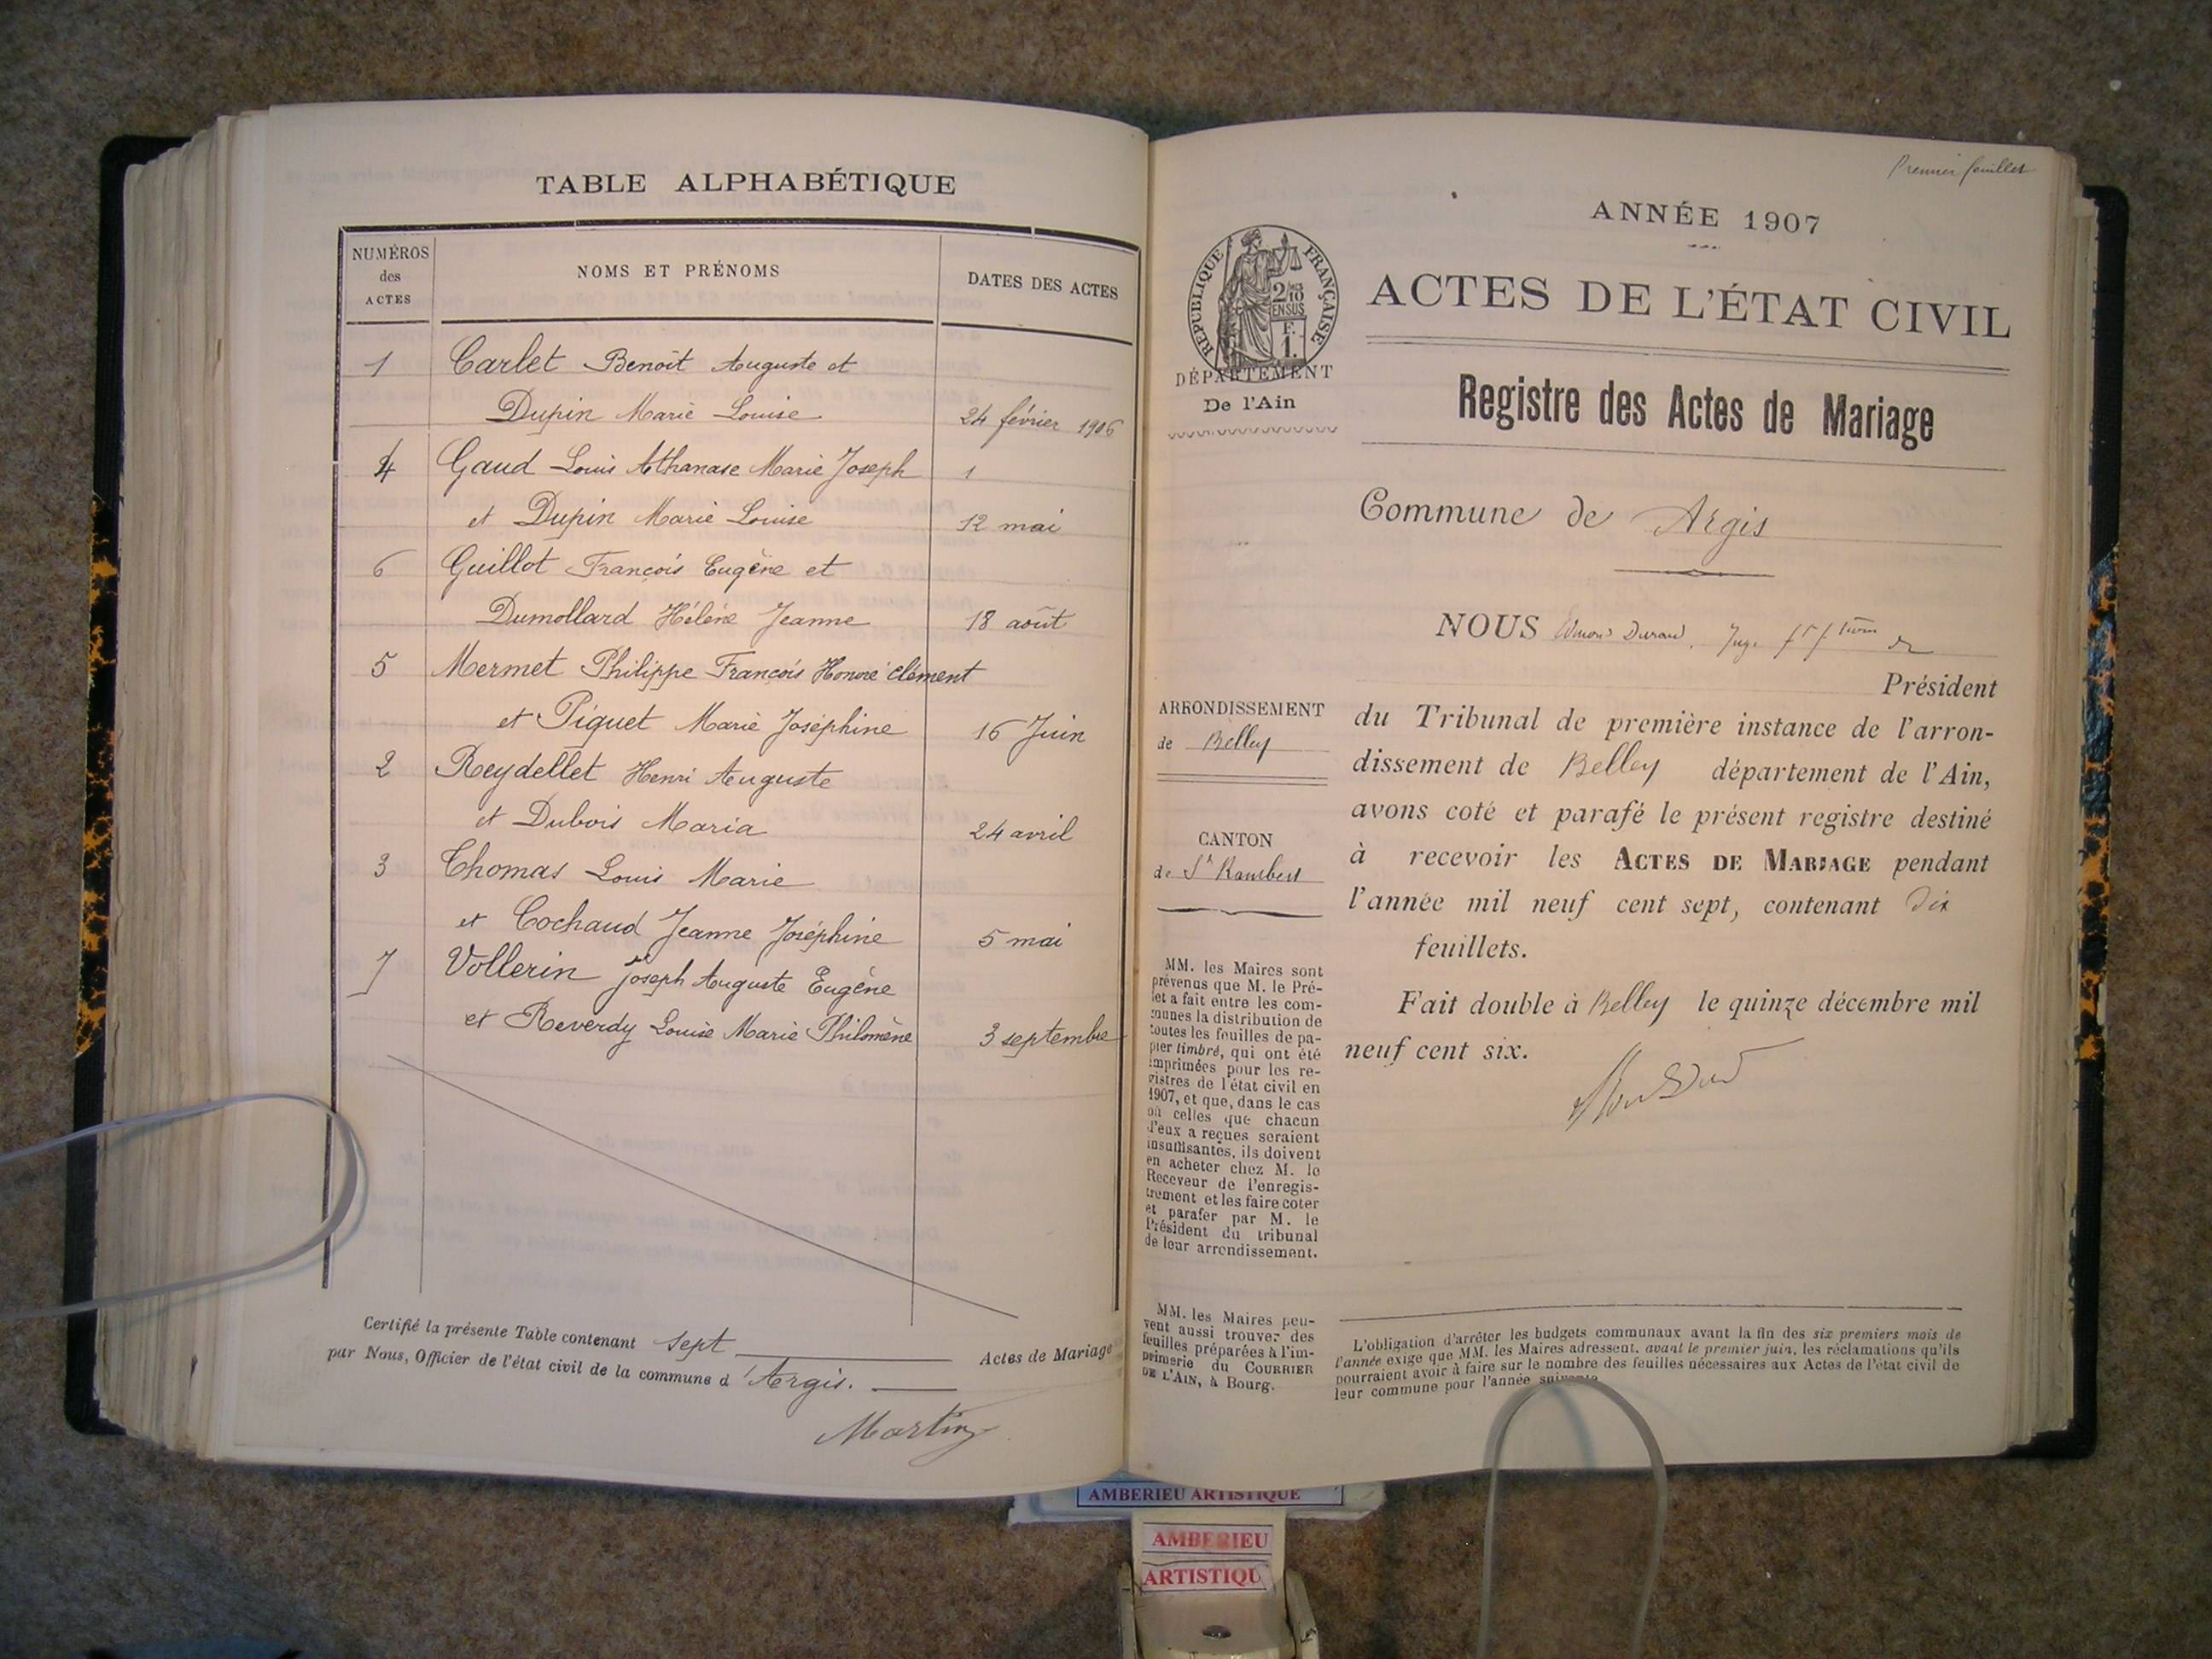 TABLE ALPHABÉTIQUE
NUMÉROS
des
ACTES
NOMS ET PRÉNOMS
DATES DES ACTES
1 Carlet Benoît Auguste et
Dupin Marie Louise 24 février 1906
4 Gaud Louis Athanase Marie Joseph 1
et Dupin Marie Louise 12 mai
6 Guillot François Eugène et
Dumollard Hélène Jeanne 18 août
5 Mermet Philippe François Honoré Clément
et Piguet Marie Joséphine 16 Juin
2 Reydellet Henri Auguste
et Dubois Maria 24 avril
3 Thomas Louis Marie
et Cochaud Jeanne Joséphine 5 mai
7 Vollerin Joseph Auguste Eugène
et Reverdy Louise Marie Philomène 3 septembre
Certifié la présente Table contenant sept Actes de Mariage
par Nous, Officier de l'état civil de la commune d'Argis.
Martin
Premier feuillet
ANNÉE 1907
RÉPUBLIQUE FRANÇAISE
2/10
EN SUS
F.
1.
DÉPARTEMENT
De l'Ain
ACTES DE L'ÉTAT CIVIL
Registre des Actes de Mariage
Commune de Argis
ARRONDISSEMENT
de Belley
CANTON
de St Rambert
MM. les Maires sont
prévenus que M. le Pré-
fet a fait entre les com-
munes la distribution de
toutes les feuilles de pa-
pier timbré, qui ont été
imprimées pour les re-
gistres de l'état civil en
1907, et que, dans le cas
où celles que chacun
d'eux a reçues seraient
insuffisantes, ils doivent
en acheter chez M. le
Receveur de l'enregis-
trement et les faire coter
et parafer par M. le
Président du tribunal
de leur arrondissement.
MM. les Maires peu-
vent aussi trouver des
feuilles préparées à l'im-
primerie du COURRIER
DE L'AIN, à Bourg.
NOUS Durand, Juge
Président
du Tribunal de première instance de l'arron-
dissement de Belley département de l'Ain,
avons coté et parafé le présent registre destiné
à recevoir les ACTES DE MARIAGE pendant
l'année mil neuf cent sept, contenant Dix
feuillets.
Fait double à Belley le quinze décembre mil
neuf cent six.
L'obligation d'arrêter les budgets communaux avant la fin des six premiers mois de
l'année exige que MM. les Maires adressent, avant le premier juin, les réclamations qu'ils
pourraient avoir à faire sur le nombre des feuilles nécessaires aux Actes de l'état civil de
leur commune pour l'année suivante
AMBERIEU ARTISTIQUE
AMBERIEU
ARTISTIQU